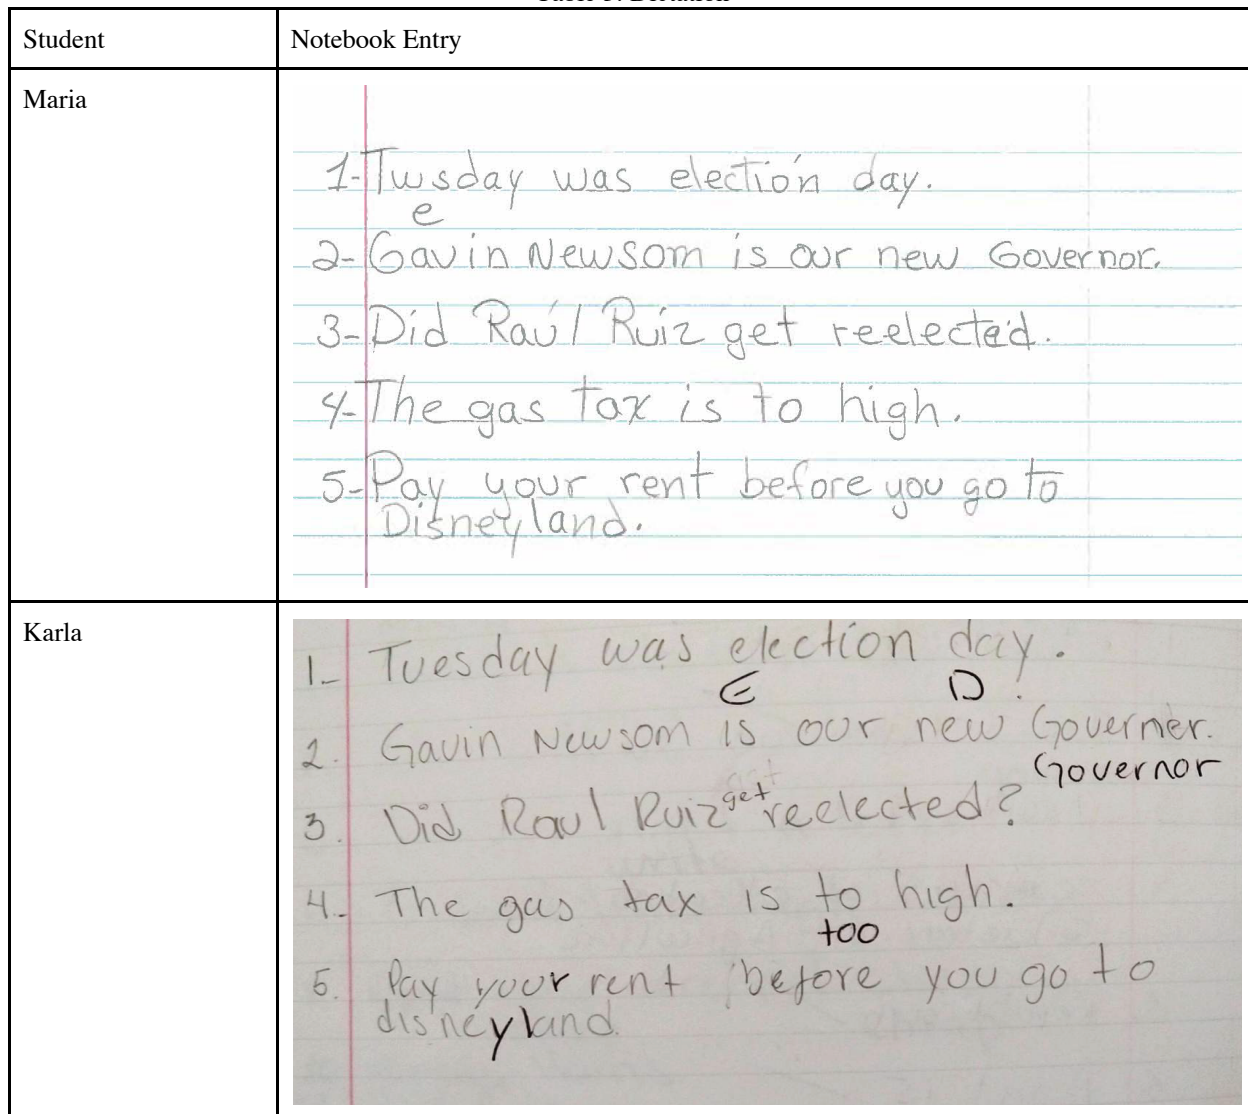 Student Notebook Entry
Maria
1-Twsday was electión day.
e
2-Gavin Newsom is our new Governor.
3-Did Raúl Ruiz get reelected.
4-The gas tax is to high.
5-Pay your rent before you go to
Disneyland.
Karla
1- Tuesday was election day.
E D
2. Gavin Newsom is our new Governer.
Governor
3. Did Raul Ruiz get reelected?
4.- The gas tax is to high.
too
5. Pay your rent before you go to
disneyland.